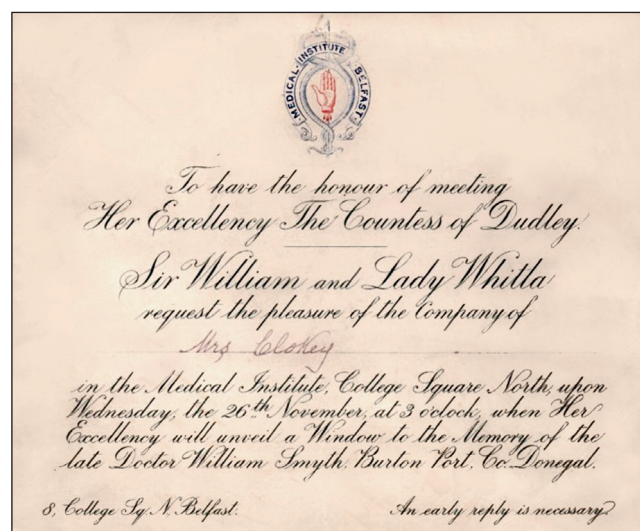 MEDICAL · INSTITUTE · BELFAST ·
To have the honour of meeting
Her Excellency The Countess of Dudley.
Sir William and Lady Whitla
request the pleasure of the Company of
Mrs Clokey
in the Medical Institute, College Square North, upon
Wednesday, the 26th November, at 3 o'clock, when Her
Excellency will unveil a Window to the Memory of the
late Doctor William Smyth, Burton Port, Co. Donegal.
8, College Sq. N. Belfast.
An early reply is necessary.